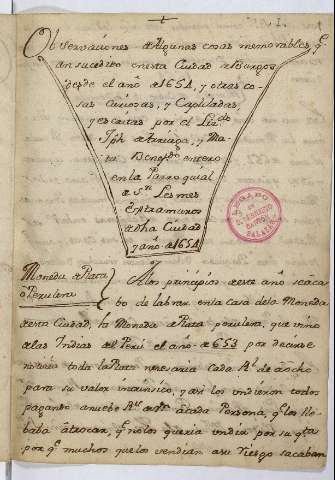 Observaciones de Algunas cosas memorables, q.e
an sucedido en esta Ciudad de Burgos
desde el año de 1654, y otras co-
sas curiosas, y Capituladas,
y escritas por el Liz.do
Jph de Arriaga, y Ma-
ta Benef.do entero
en la Parroquial
de S.n Lesmes
extramuros
de dha Ciudad
y año de 1654
Moneda de Plata
o Perulera
A los principios deste año se aca-
bo de labrar en la casa de la Moneda
desta Ciudad, la Moneda de Plata perulera, que vino
de las Indias del Perú el año de 653 por decirse
toda la Plata cada R.l de a ocho
para su valor intrinsico, y asi los undieron todos
pagando a nueve R.s a cada Persona, q.e los lle-
baba a trocar, q.e no los queria undir por su q.ta
por q.e muchos que los vendian a su riesgo sacaban